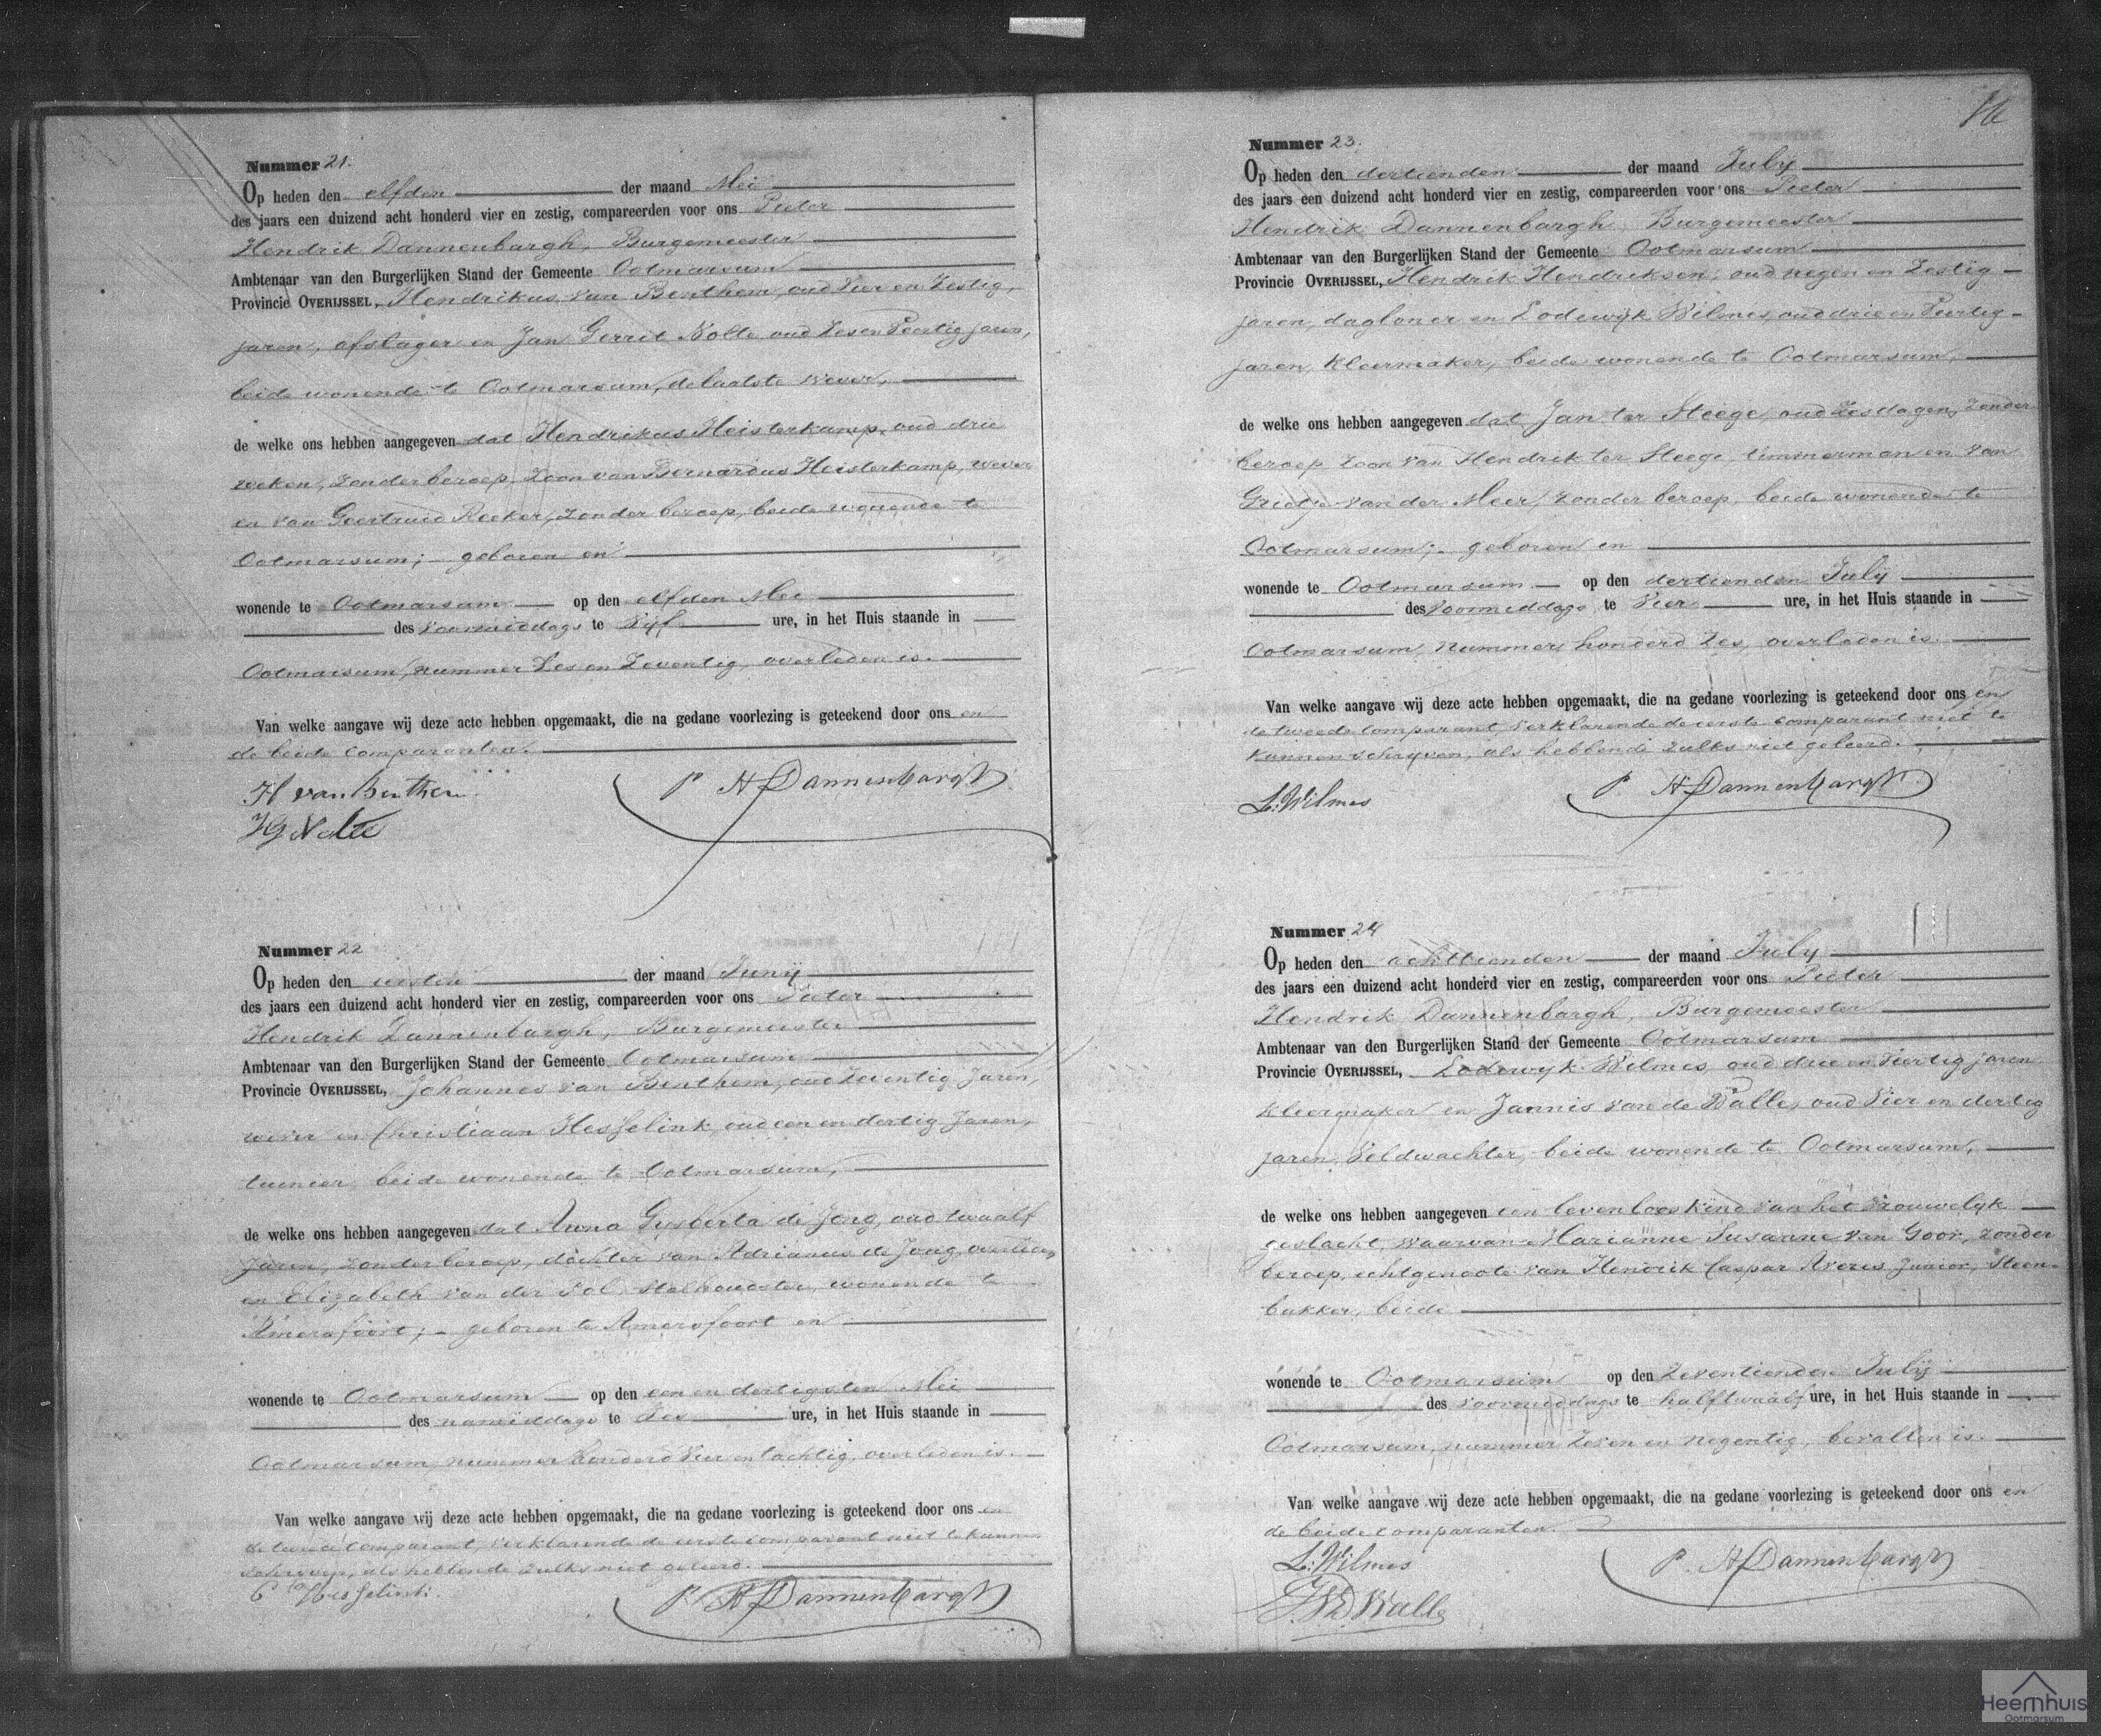 Nummer 21.
Op heden den elfden der maand Mei
des jaars een duizend acht honderd vier en zestig, compareerden voor ons Pieter
Hendrik Dannenbargh, Burgemeester
Ambtenaar van den Burgerlijken Stand der Gemeente Ootmarsum
Provincie OVERIJSSEL, Hendrikus van Benthem, oud vier en zestig
jaren, afslager en Jan Gerrit Nolte oud zes en veertig jaren,
beide wonende te Ootmarsum, de laatste wever,
de welke ons hebben aangegeven dat Hendrikus Heisterkamp, oud drie
weken, zonder beroep, zoon van Bernardus Heisterkamp, wever
en van Geertruid Roeker, zonder beroep, beide wonende te
Ootmarsum; geboren en
wonende te Ootmarsum op den elfden Mei
des voormiddags te vijf ure, in het Huis staande in
Ootmarsum, nummer zes en zeventig, overleden is.
Van welke aangave wij deze acte hebben opgemaakt, die na gedane voorlezing is geteekend door ons en
de beide comparanten.
H van Benthem
JG Nolte
P. H Dannenbargh
Nummer 22
Op heden den eersten der maand Junij
des jaars een duizend acht honderd vier en zestig, compareerden voor ons Pieter
Hendrik Dannenbargh, Burgemeester
Ambtenaar van den Burgerlijken Stand der Gemeente Ootmarsum
Provincie OVERIJSSEL, Johannes van Benthem, oud zeventig jaren,
wever en Christiaan Hesselink, oud een en dertig jaren,
tuinier, beide wonende te Ootmarsum,
de welke ons hebben aangegeven dat Anna Gysberta de Jong, oud twaalf
jaren, zonder beroep, dochter van Adrianus de Jong, overleden
en Elizabeth van der Pol, wonende te
Amersfoort; geboren te Amersfoort en
wonende te Ootmarsum op den een en dertigsten Mei
des namiddags te zes ure, in het Huis staande in
Ootmarsum, nummer honderd vier en tachtig, overleden is.
Van welke aangave wij deze acte hebben opgemaakt, die na gedane voorlezing is geteekend door ons en
de tweede comparant, verklarende de eerste comparant niet te kunnen
schrijven, als hebbende zulks niet geleerd.
C Hesselink
P. H Dannenbargh
Nummer 23.
Op heden den dertienden der maand July
des jaars een duizend acht honderd vier en zestig, compareerden voor ons Pieter
Hendrik Dannenbargh, Burgemeester
Ambtenaar van den Burgerlijken Stand der Gemeente Ootmarsum
Provincie OVERIJSSEL, Hendrik Hendriksen, oud negen en zestig
jaren, dagloner en Lodewijk Wilmes, oud drie en veertig
jaren, kleermaker, beide wonende te Ootmarsum,
de welke ons hebben aangegeven dat Jan ter Steege, oud zes dagen, zonder
beroep, zoon van Hendrik ter Steege, timmerman en van
Grietje van der Meer, zonder beroep, beide wonende te
Ootmarsum; geboren en
wonende te Ootmarsum op den dertienden July
des voormiddags te vier ure, in het Huis staande in
Ootmarsum, nummer honderd zes, overleden is.
Van welke aangave wij deze acte hebben opgemaakt, die na gedane voorlezing is geteekend door ons en
de tweede comparant, verklarende de eerste comparant niet te
kunnen schrijven, als hebbende zulks niet geleerd.
L: Wilmes
P. H Dannenbargh
Nummer 24
Op heden den achttienden der maand July
des jaars een duizend acht honderd vier en zestig, compareerden voor ons Pieter
Hendrik Dannenbargh, Burgemeester
Ambtenaar van den Burgerlijken Stand der Gemeente Ootmarsum
Provincie OVERIJSSEL, Lodewijk Wilmes, oud drie en veertig jaren
kleermaker en Jannis van de Walle, oud vier en dertig
jaren, veldwachter, beide wonende te Ootmarsum,
de welke ons hebben aangegeven een levenloos kind van het vrouwelijk
geslacht, waarvan Marianne Susanne van Goor, zonder
beroep, echtgenoote van Hendrik Caspar Averes Junior, Steen-
bakker, beide
wonende te Ootmarsum op den zeventienden July
des voormiddags te half twaalf ure, in het Huis staande in
Ootmarsum, nummer zeven en negentig, bevallen is.
Van welke aangave wij deze acte hebben opgemaakt, die na gedane voorlezing is geteekend door ons en
de beide comparanten.
L: Wilmes
J. Vd Walle
P. H Dannenbargh
Heemhuis
Ootmarsum